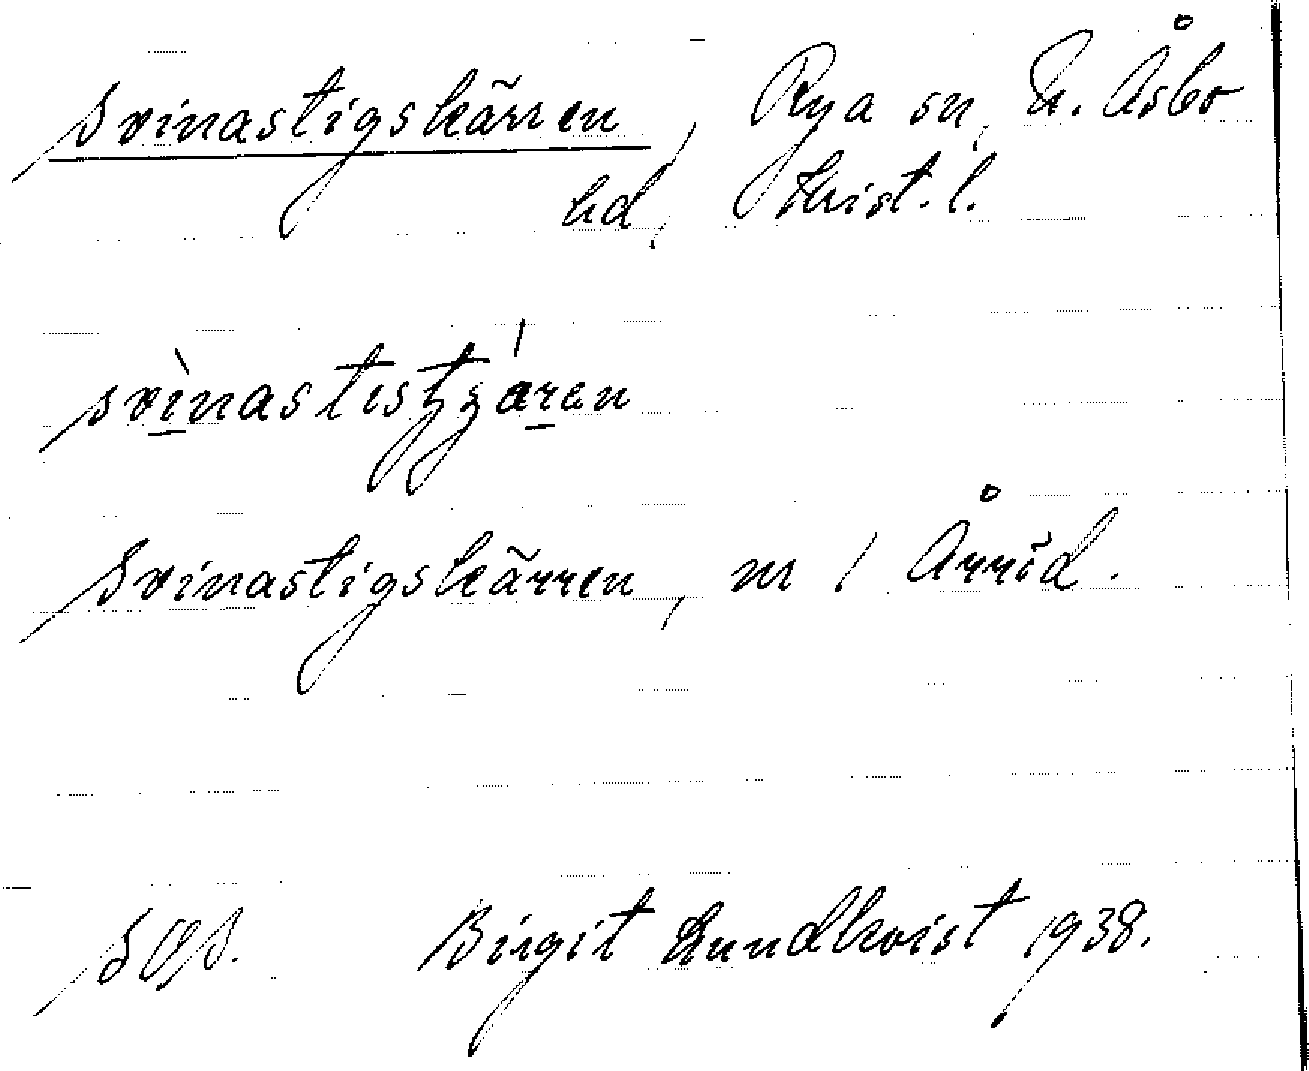 Svinastigskärren, Rya sn, N. Åsbo
hd, Krist. l.
svìnastistʒáren
Svinastigskärren, nr 1 Årröd.
SOA. Birgit Lundkvist 1938.